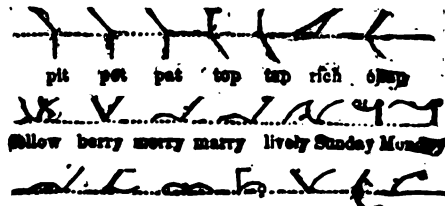 pit pet pat top tap rich
follow berry merry marry lively Sunday Monday